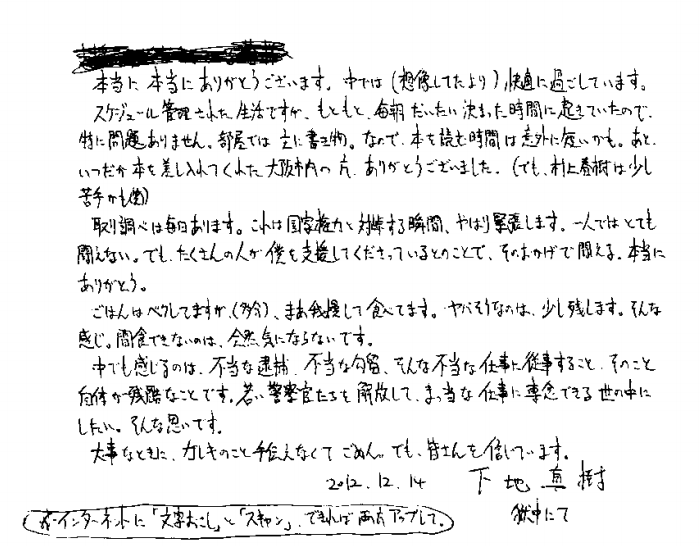 本当に本当にありがとうございます。中では(想像してたより)、快適に過ごしています。
スケジュール管理された生活ですが、もともと、毎朝だいたい決まった時間に起きていたので、
特に問題ありません。部屋では主に書き物。なので、本を読む時間は意外に短いかも。あと、
いつだか本を差し入れてくれた大阪市内の方、ありがとうございました。(でも、村上春樹は少し
苦手かも(笑))
取り調べは毎日あります。これは国家権力と対峙する瞬間、やはり緊張します。一人ではとても
闘えない。でも、たくさんの人が僕を支援してくださっているとのことで、そのおかげで闘える。本当に
ありがとう。
ごはんはベクレてますが、(多分)、まあ我慢して食べてます。ヤバそうなのは、少し残します。そんな
感じ。間食できないのは、全然気にならないです。
中でも感じるのは、不当な逮捕、不当な勾留、そんな不当な仕事に従事すること、そのこと
自体が残酷なことです。若い警察官たちを解放して、まっ当な仕事に専念できる世の中に
したい。そんな思いです。
大事なときに、ガレキのこと手伝えなくてごめん。でも、皆さんを信じています。
2012.12.14 下地真樹
獄中にて
※インターネットに「文字おこし」と「スキャン」、できれば両方アップして。